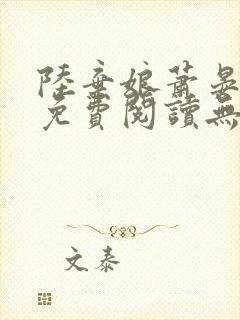 陸棄娘蕭晏
免費閱讀無
文泰